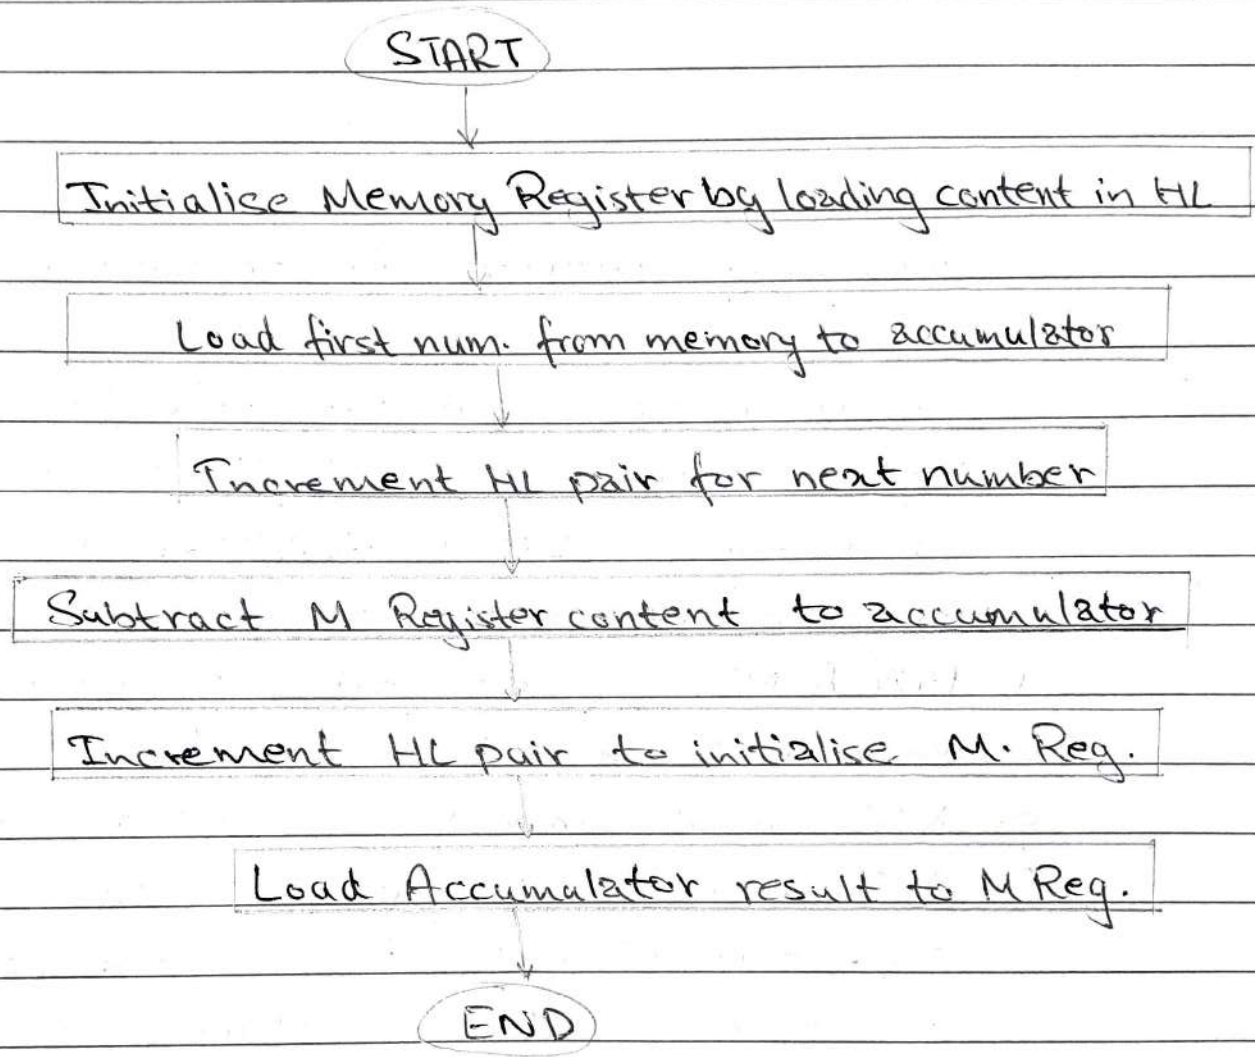 START
Initialise Memory Register by loading content in HL
Load first num. from memory to accumulator
Increment HL pair for next number
Subtract M Register content to accumulator
Increment HL pair to initialise M. Reg.
Load Accumulator result to M Reg.
END